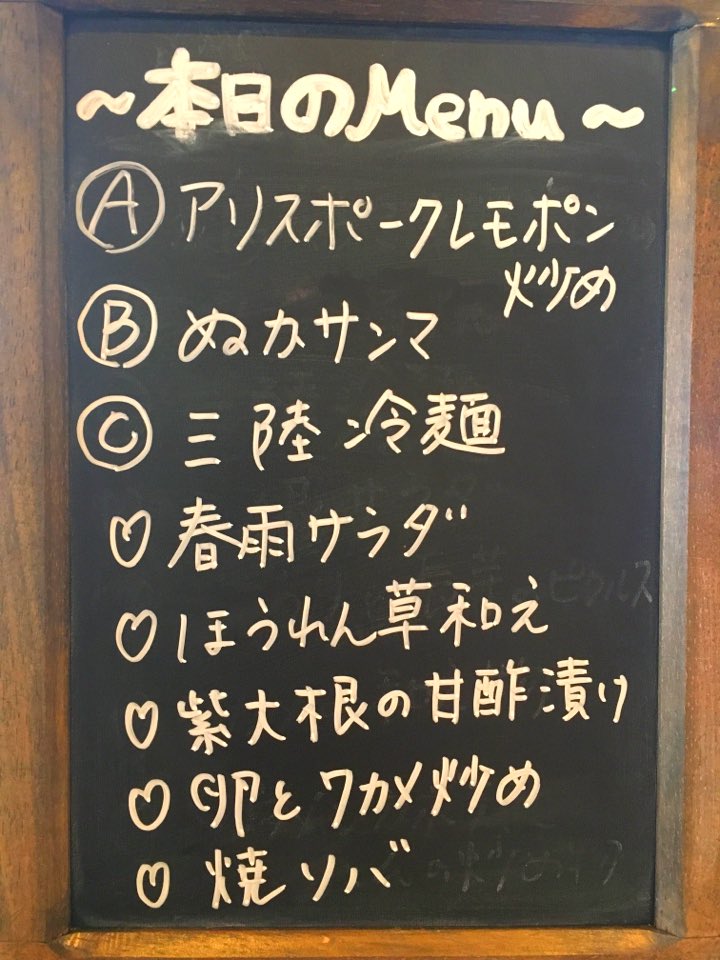 ~本日のMenu~
Ⓐ アリスポークレモポン
炒め
Ⓑ ぬカサンマ
Ⓒ 三陸冷麺
♡ 春雨サラダ
♡ ほうれん草和え
♡ 紫大根の甘酢漬け
♡ 卵とワカメ炒め
♡ 焼ソバ